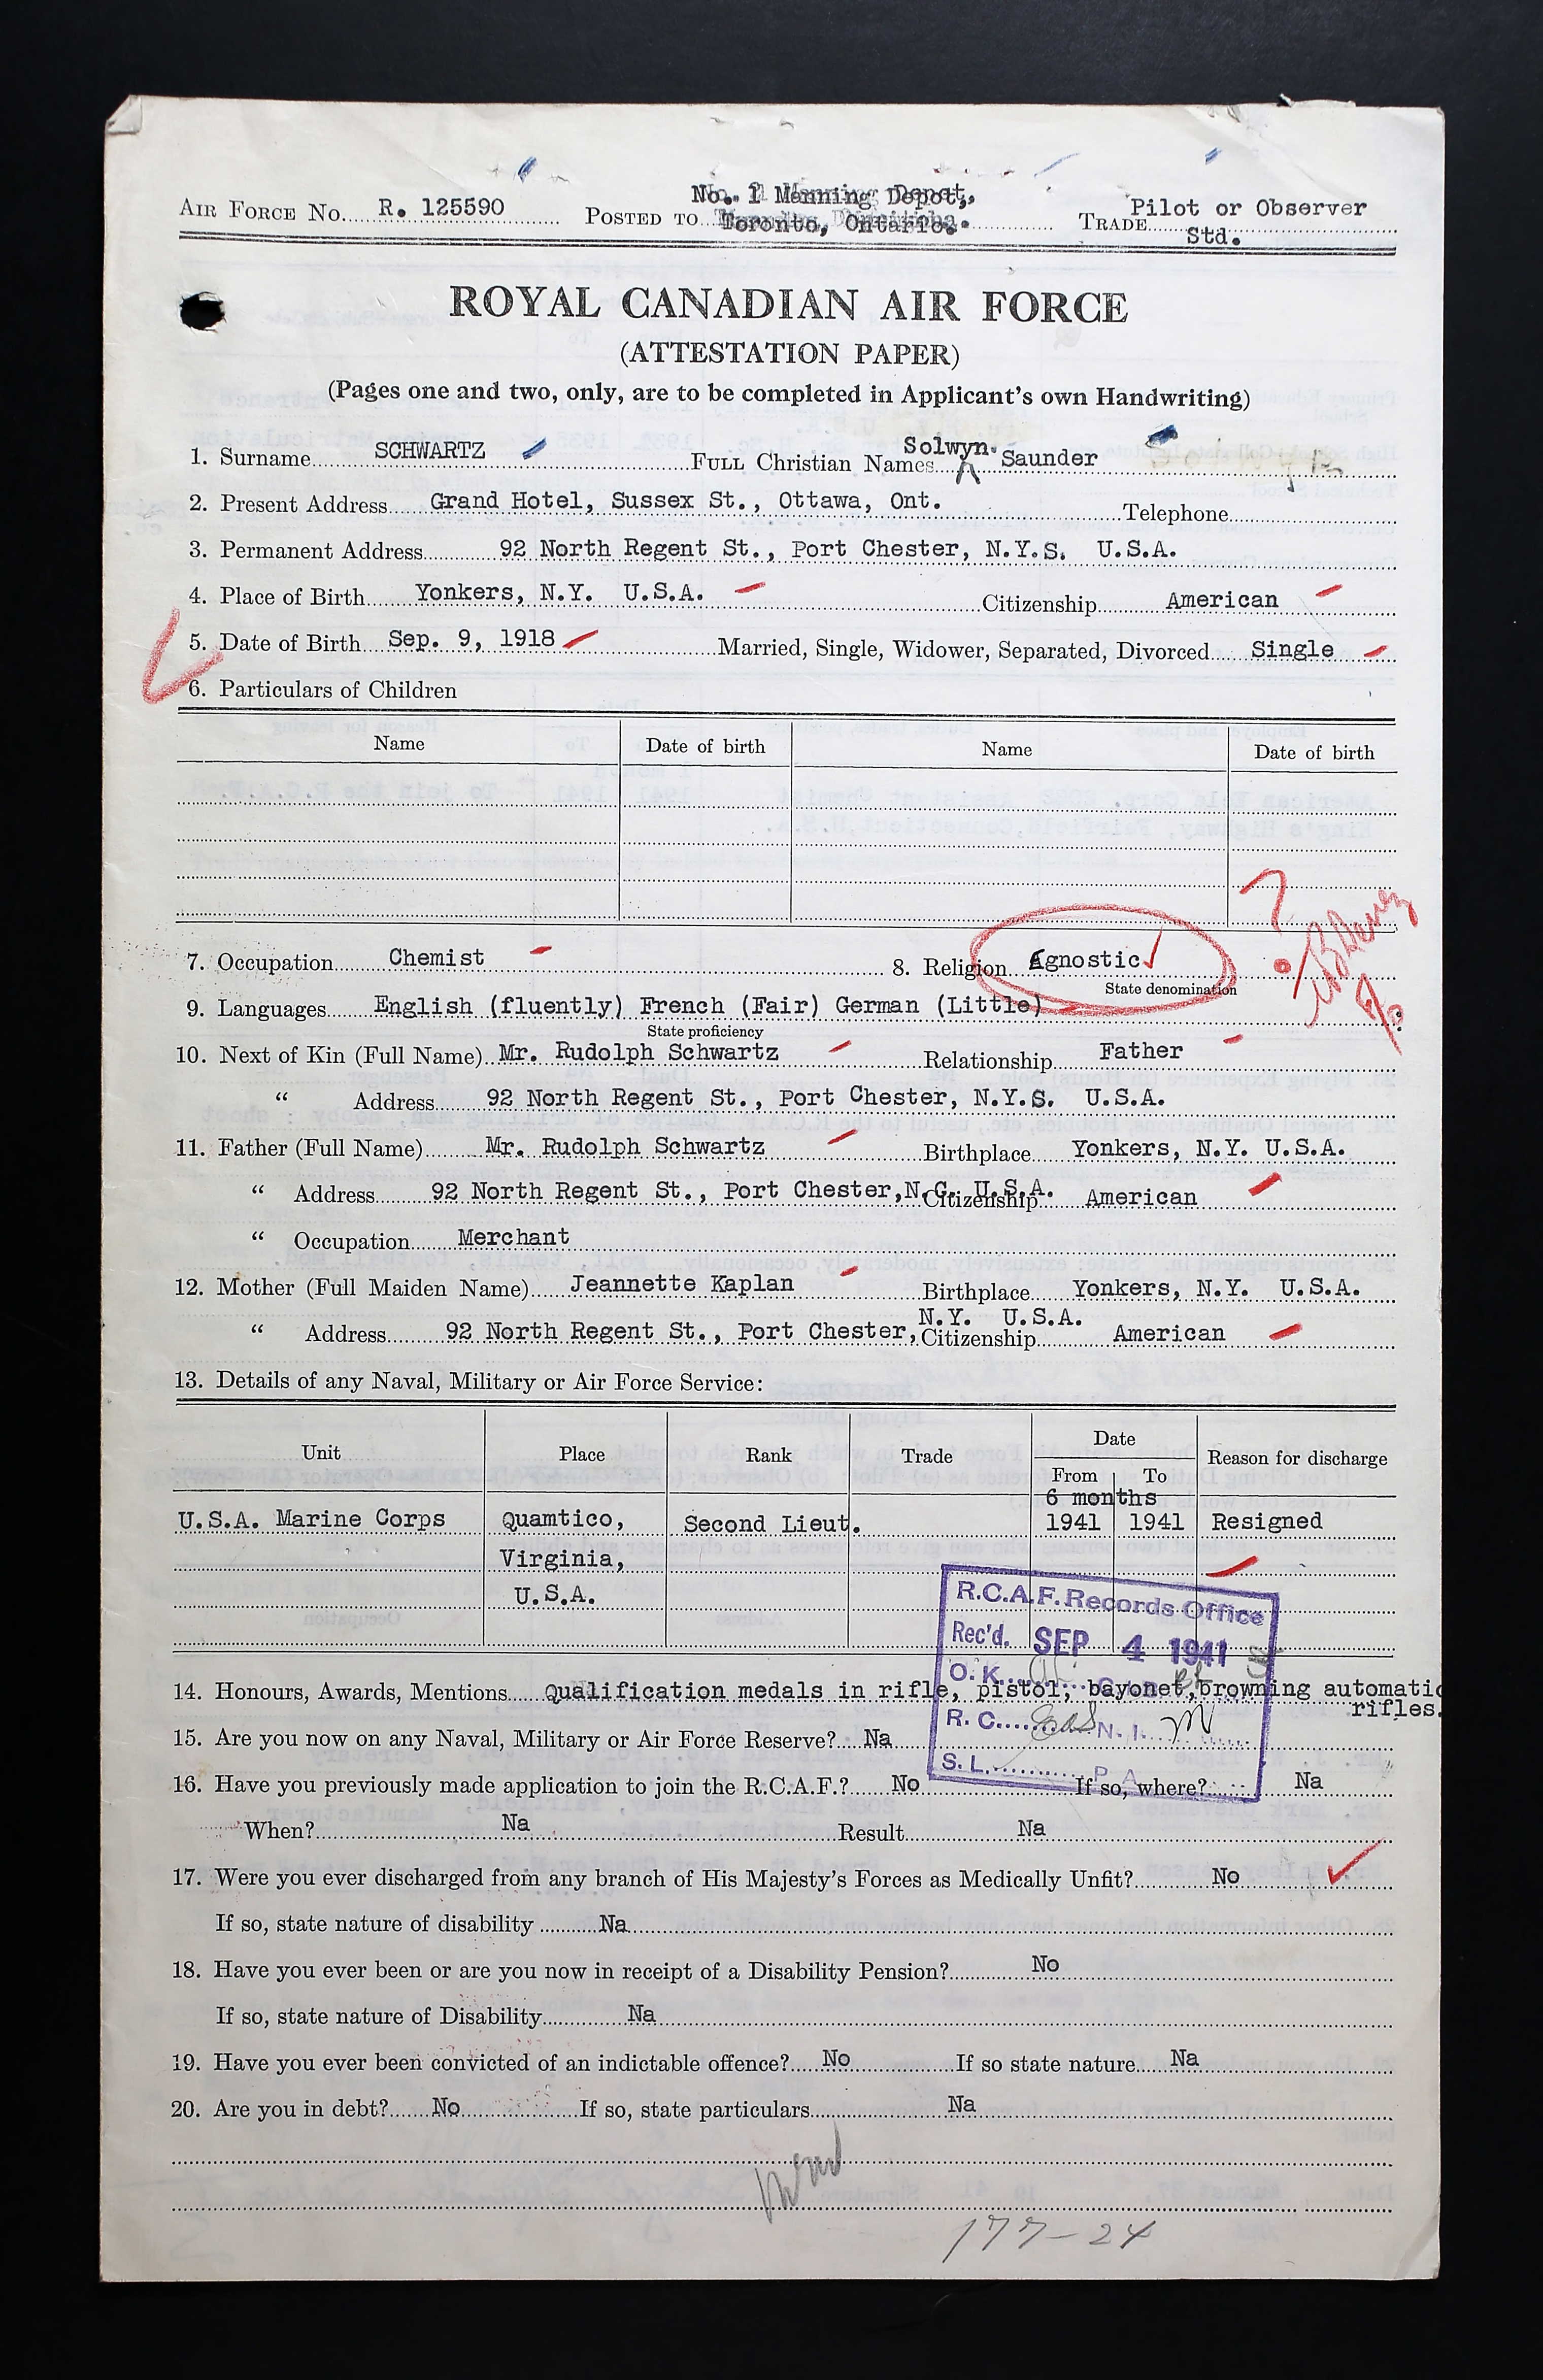 AIR FORCE NO. R. 125590 POSTED TO No. 1 Manning Depot, Toronto, Ontario. TRADE Pilot or Observer Std.
ROYAL CANADIAN AIR FORCE
(ATTESTATION PAPER)
(Pages one and two, only, are to be completed in Applicant's own Handwriting)
1. Surname SCHWARTZ FULL Christian Names Solwyn Saunder
2. Present Address Grand Hotel, Sussex St., Ottawa, Ont. Telephone
3. Permanent Address 92 North Regent St., Port Chester, N.Y.S. U.S.A.
4. Place of Birth Yonkers, N.Y. U.S.A. Citizenship American
5. Date of Birth Sep. 9, 1918 Married, Single, Widower, Separated, Divorced Single
6. Particulars of Children
Name Date of birth Name Date of birth
7. Occupation Chemist 8. Religion Agnostic
State denomination
9. Languages English (fluently) French (Fair) German (Little)
State proficiency
10. Next of Kin (Full Name) Mr. Rudolph Schwartz Relationship Father
" Address 92 North Regent St., Port Chester, N.Y.S. U.S.A.
11. Father (Full Name) Mr. Rudolph Schwartz Birthplace Yonkers, N.Y. U.S.A.
" Address 92 North Regent St., Port Chester, N.C. U.S.A. Citizenship American
" Occupation Merchant
12. Mother (Full Maiden Name) Jeannette Kaplan Birthplace Yonkers, N.Y. U.S.A.
" Address 92 North Regent St., Port Chester, N.Y. U.S.A. Citizenship American
13. Details of any Naval, Military or Air Force Service:
Unit Place Rank Trade Date Reason for discharge
From To
6 months
U.S.A. Marine Corps Quamtico, Second Lieut. 1941 1941 Resigned
Virginia,
U.S.A.
R.C.A.F. Records Office
Rec'd. SEP 4 1941
O.K.
14. Honours, Awards, Mentions Qualification medals in rifle, pistol, bayonet, browning automatic
rifles.
R.C. N.I.
15. Are you now on any Naval, Military or Air Force Reserve? Na
S.L. P.A.
16. Have you previously made application to join the R.C.A.F.? No If so, where? Na
When? Na Result Na
17. Were you ever discharged from any branch of His Majesty's Forces as Medically Unfit? No
If so, state nature of disability Na
18. Have you ever been or are you now in receipt of a Disability Pension? No
If so, state nature of Disability Na
19. Have you ever been convicted of an indictable offence? No If so state nature Na
20. Are you in debt? No If so, state particulars Na
177-24